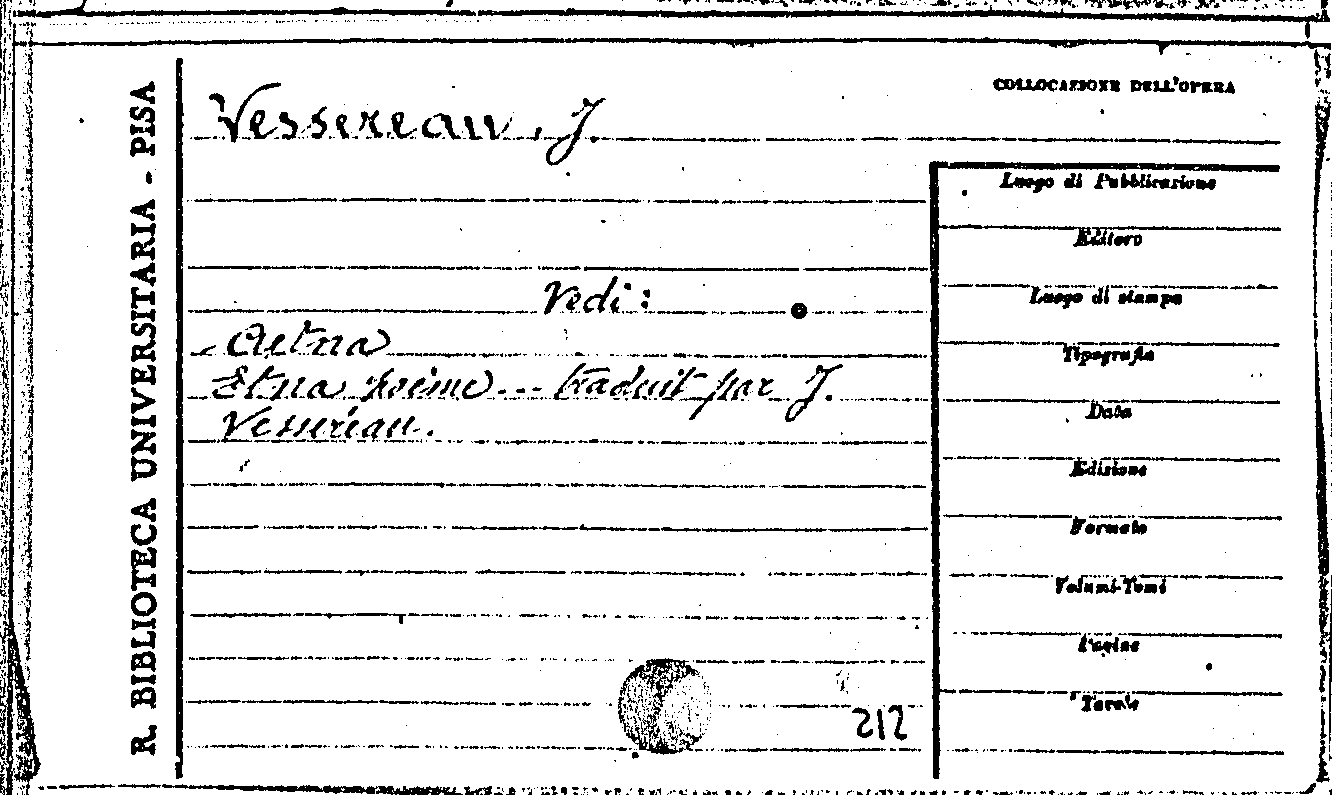 R. BIBLIOTECA UNIVERSITARIA - PISA
Vessereau, J.
Vedi:
Aetna
Etna poème... traduit par J.
Vesseréau.
212
COLLOCAZIONE DELL'OPERA
Luogo di Pubblicazione
Editore
Luogo di stampa
Tipografia
Data
Edizione
Formato
Volumi-Tomi
Pagine
Tavole